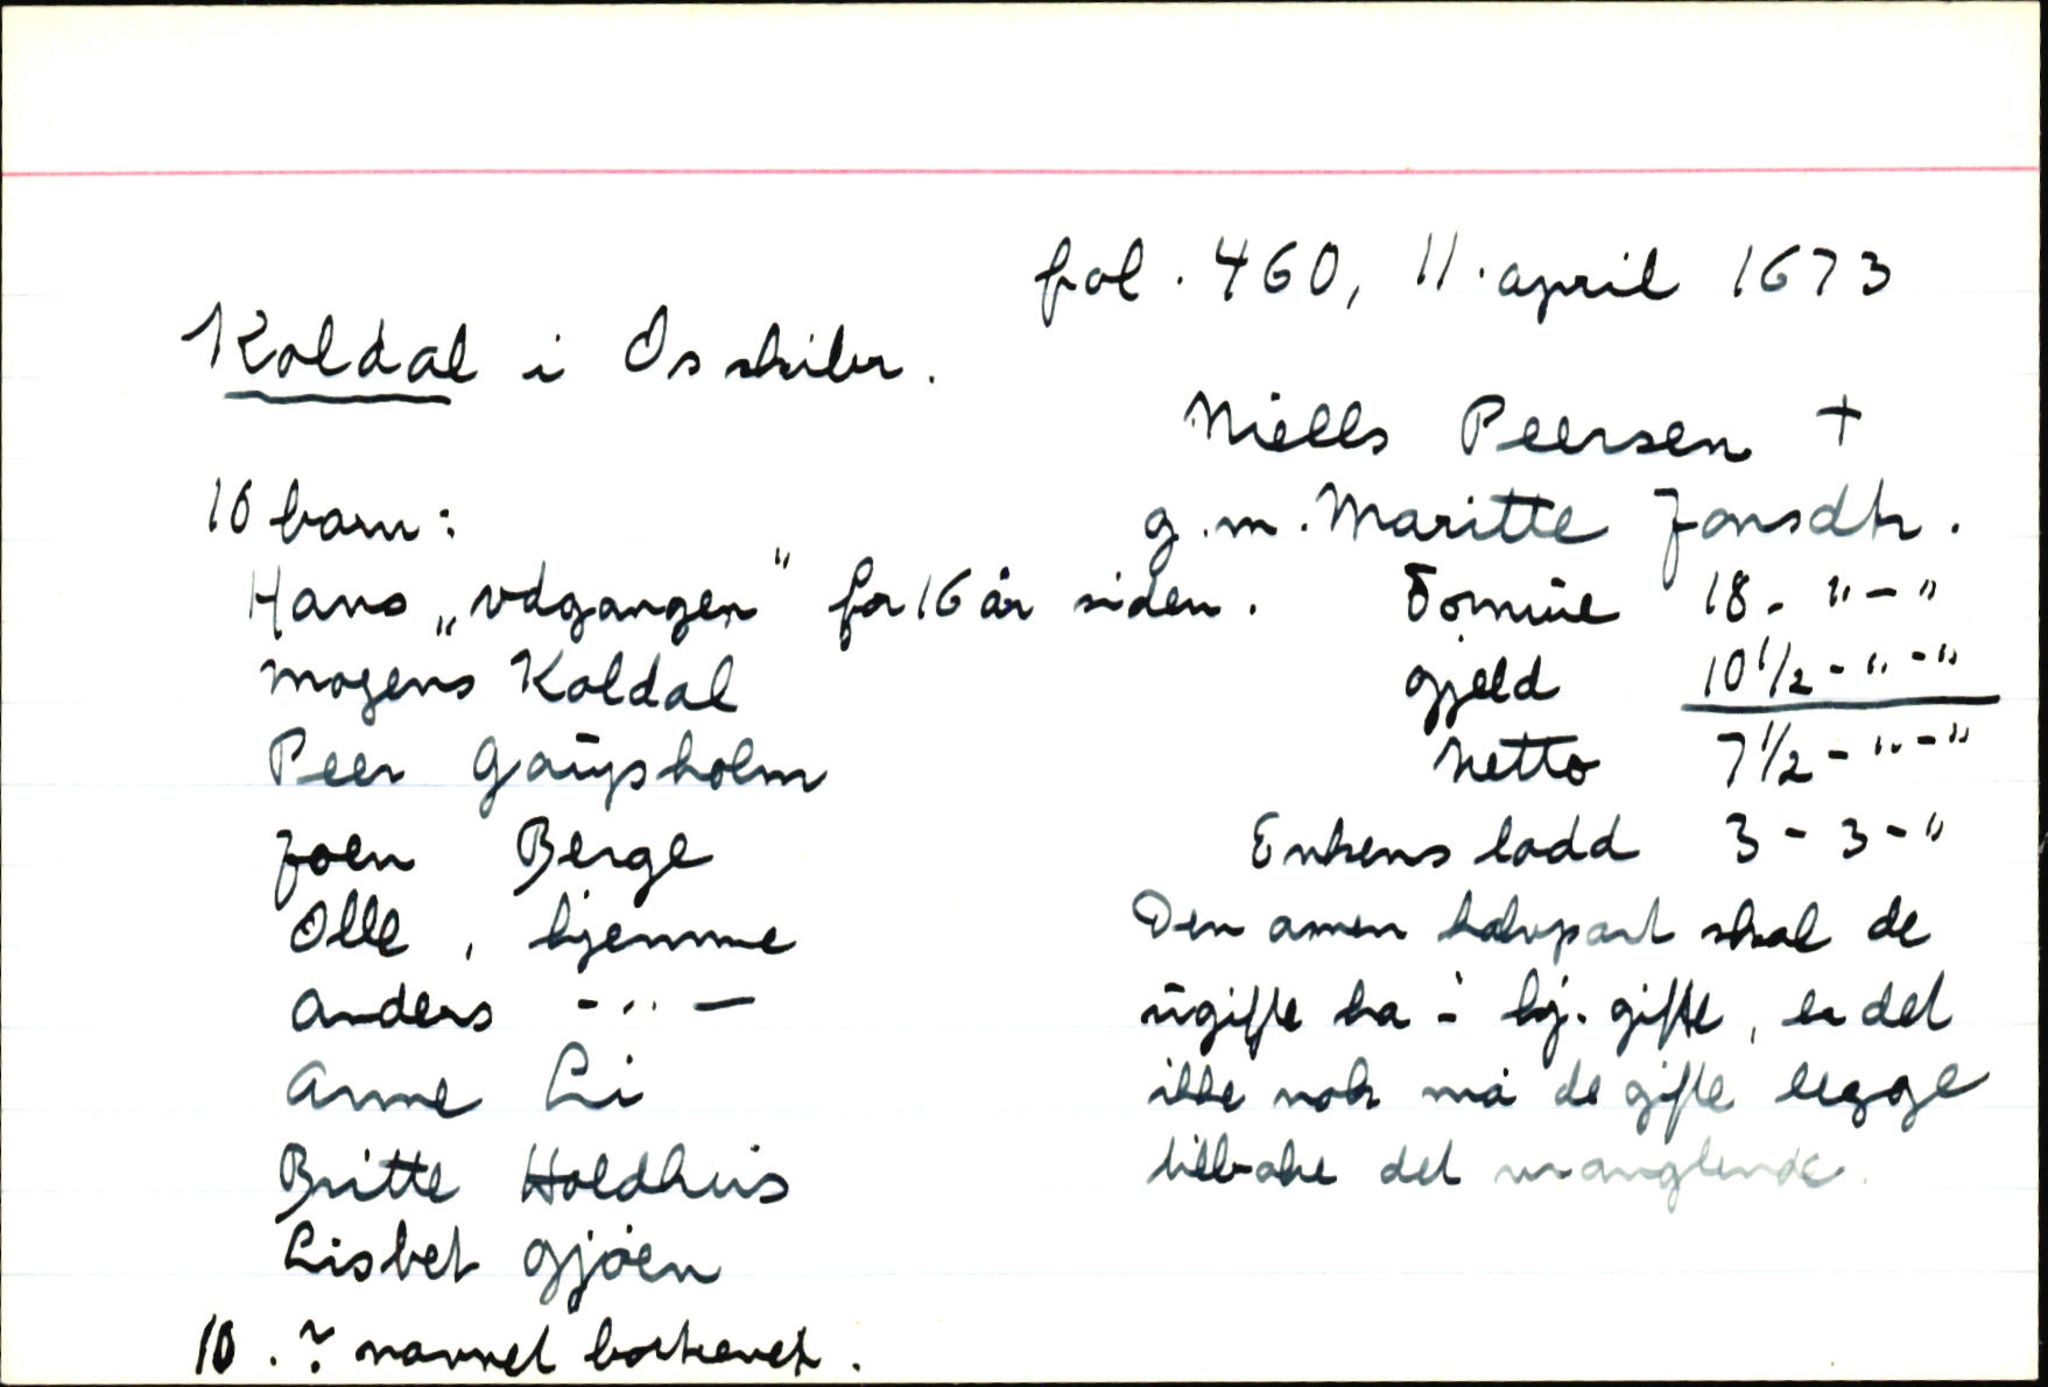 fol. 460, 11. april 1673
Koldal i Os skibr.
Niells Peersen +
g.m. Maritte Jonsdtr.
10 barn:
Hans „vdgangen" for 16 år siden.
Mogens Koldal
Peer Gaūpsholm
Joen Berge
Olle, hjemme
Anders -"-
Anne Li
Britte Holdhus
Lisbet Gjøen
10. ? navnet bortrevet.
Formūe 18 - " - "
gjeld 10 1/2 - " - "
Netto 7 1/2 - " - "
Enkens lodd 3 - 3 - "
Den annen halvpart skal de
ūgifte ha i hj. gifte, er det
ikke nok må de gifte legge
tilbake det manglende.